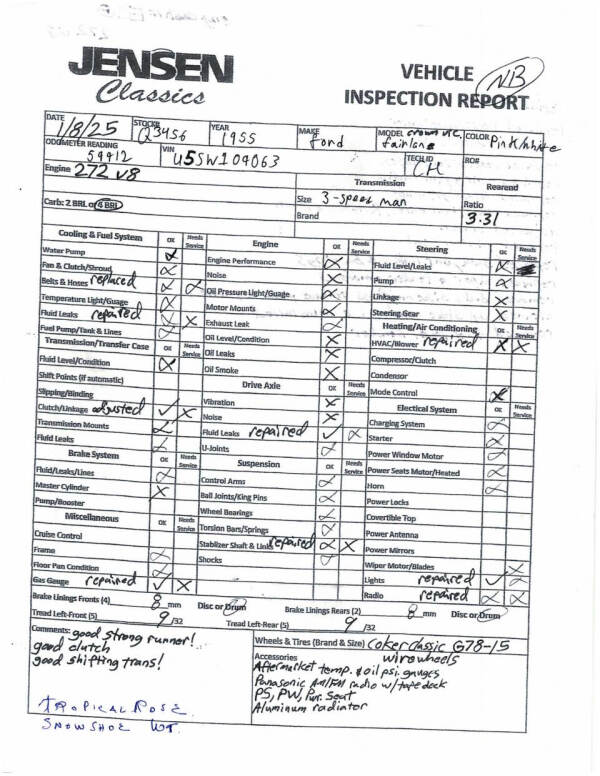 JENSEN
Classics
VEHICLE
INSPECTION REPORT
NB
DATE 1/8/25 STOCK# Q3456 YEAR 1955 MAKE Ford MODEL crown Vic. fairlane COLOR Pink/white
ODOMETER READING 59912 VIN U5SW104063 TECH ID CH RO#
Engine 272 V8 Transmission Rearend
Size 3-speed man Ratio
Carb: 2 BRL or 4 BRL Brand 3.31
Cooling & Fuel System OK Needs Service
Water Pump
Fan & Clutch/Shroud
Belts & Hoses replaced
Temperature Light/Guage
Fluid Leaks repaired
Fuel Pump/Tank & Lines
Transmission/Transfer Case OK Needs Service
Fluid Level/Condition
Shift Points (if automatic)
Slipping/Binding
Clutch/Linkage adjusted
Transmission Mounts
Fluid Leaks
Brake System OK Needs Service
Fluid/Leaks/Lines
Master Cylinder
Pump/Booster
Miscellaneous OK Needs Service
Cruise Control
Frame
Floor Pan Condition
Gas Gauge repaired
Engine OK Needs Service
Engine Performance
Noise
Oil Pressure Light/Guage
Motor Mounts
Exhaust Leak
Oil Level/Condition
Oil Leaks
Oil Smoke
Drive Axle OK Needs Service
Vibration
Noise
Fluid Leaks repaired
U-Joints
Suspension OK Needs Service
Control Arms
Ball Joints/King Pins
Wheel Bearings
Torsion Bars/Springs
Stablizer Shaft & Links repaired
Shocks
Steering OK Needs Service
Fluid Level/Leaks
Pump
Linkage
Steering Gear
Heating/Air Conditioning OK Needs Service
HVAC/Blower repaired
Compressor/Clutch
Condensor
Mode Control
Electrical System OK Needs Service
Charging System
Starter
Power Window Motor
Power Seats Motor/Heated
Horn
Power Locks
Covertible Top
Power Antenna
Power Mirrors
Wiper Motor/Blades
Lights repaired
Radio repaired
Brake Linings Fronts (4) 8 mm Disc or Drum Brake Linings Rears (2) 8 mm Disc or Drum
Tread Left-Front (5) 9/32 Tread Left-Rear (5) 9/32
Comments: good strong runner!
good clutch
good shifting trans!
TROPICAL ROSE
SNOWSHOE WT.
Wheels & Tires (Brand & Size) Coker classic G78-15
Accessories wirewheels
Aftermarket temp. & oil psi. gauges
Panasonic AM/FM radio w/ tape deck
PS, PW, Pwr. Seat
Aluminum radiator